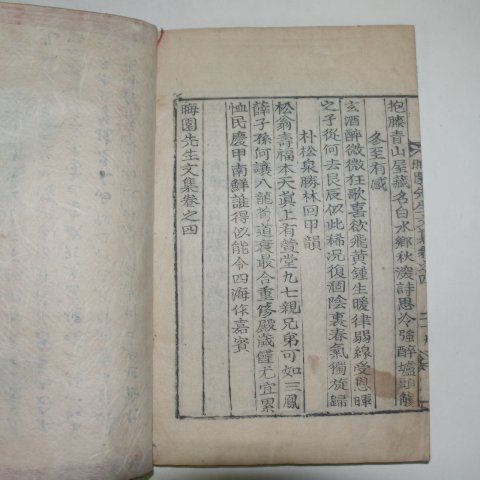 抱膝青山屋藏名白水鄉秋深詩思冷強醉墟頭觴
冬至有感
玄酒醉微微狂歌喜欲飛黃鍾生暖律弱線受恩暉
之子從何去良辰似此稀況復涸陰裏春氣獨旋歸
朴松泉勝林回甲韻
松翁壽福本天眞上有萱堂九七親兄弟可如三鳳
薛子孫何讓八龍荀道衰最合重修殿歲饉尤宜累
恤民慶甲南鮮誰得似能令四海作嘉賓
晦園先生文集卷之四